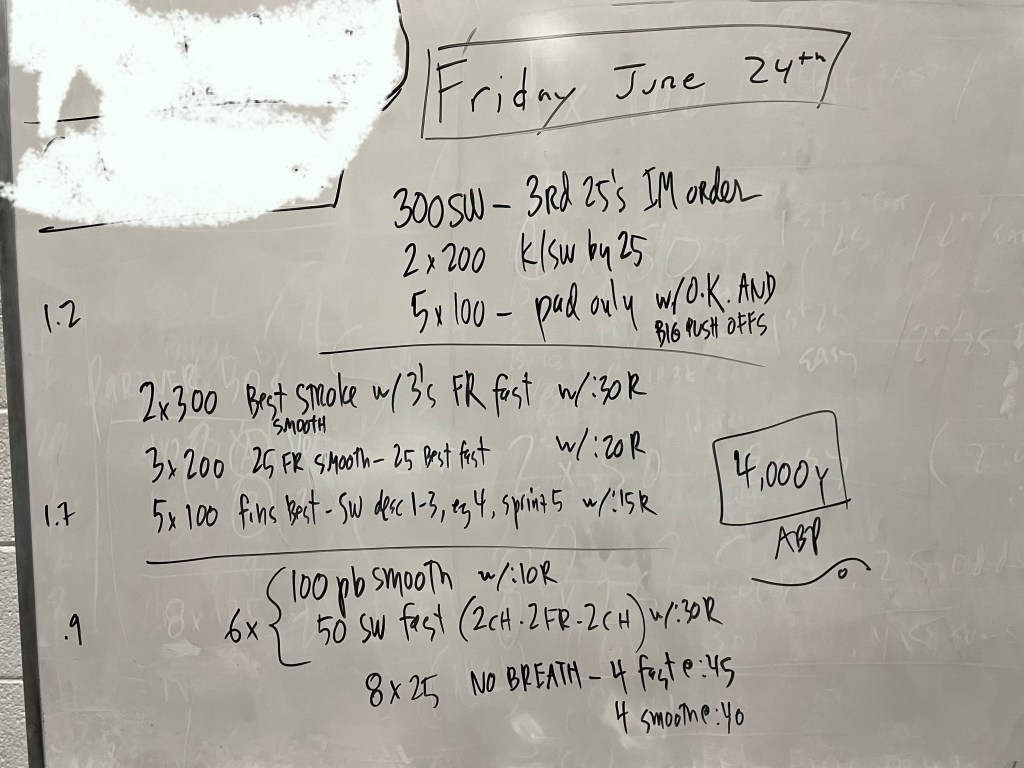 Friday June 24th
300 SW - 3Rd 25's IM order
2 x 200 K/SW by 25
1.2
5 x 100 - pad only w/ O.K. AND
BIG PUSH OFFS
2 x 300 Best stroke w/ 3's FR fast w/ :30 R
SMOOTH
3 x 200 25 FR smooth - 25 Best fast w/ :20 R
1.7
5 x 100 fins Best - SW desc 1-3, ez 4, sprint 5 w/ :15R
4,000 y
ABP
.9
6x { 100 pb smooth w/ :10R
50 SW fast (2CH - 2FR - 2CH) w/ :30R
8 x 25 NO BREATH - 4 fast @ :45
4 smooth @ :40